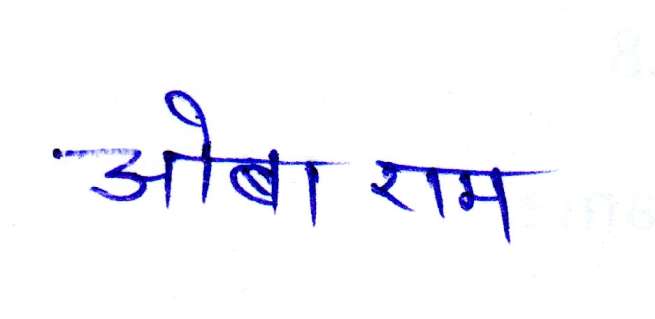 ओबा राम